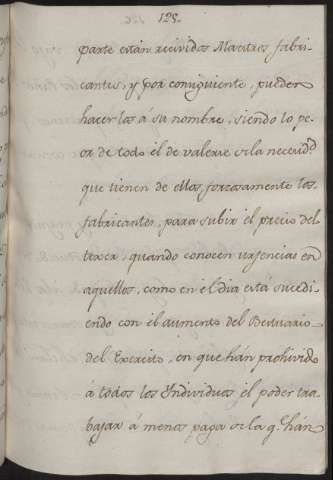 125.
parte están recividos Maestres fabri-
cantes, y por consiguiente, pueden
hacerlas á su nombre, siendo lo pe-
or de todo él de valerse de la necesid.d
que tienen de ellos, forzosamente los
fabricantes, para subir él precio del
texer, quando conocen urgencias en
aquellos, como en el dia está sucedi-
endo con él aumento del Bestuario
del Exercito, en que hán prohivido
á todos los Individuos él poder tra-
bajar á menos paga de la q.e hán